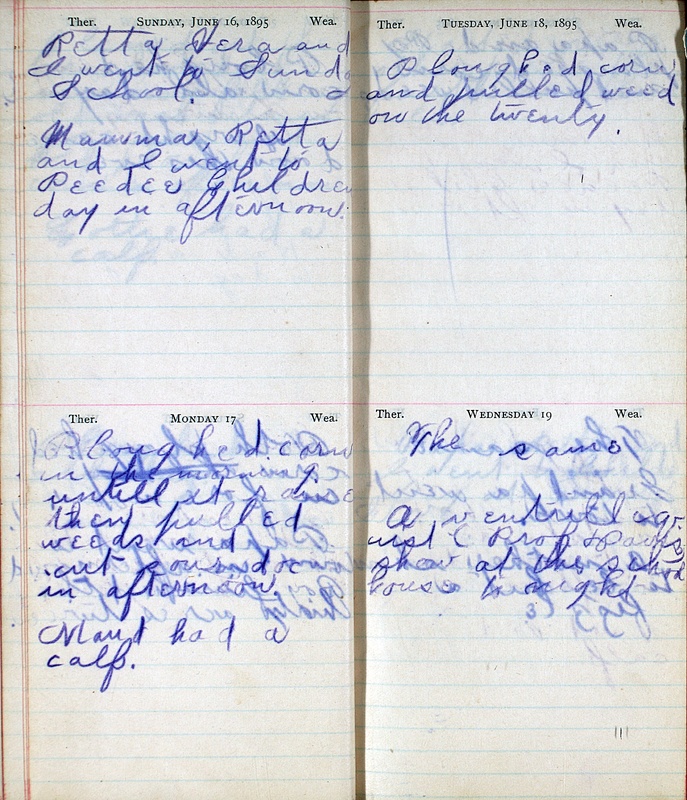 Ther. SUNDAY, JUNE 16, 1895 Wea.
Retta Vera and
I went to Sunda
School.
Mamma, Retta
and I went to
Peedee Children
day in afternoon.
Ther. MONDAY 17 Wea.
Ploughed corn
in the morning
untill it raine
then pulled
weeds and
cut
in afternoon.
Maud had a
calf.
Ther. TUESDAY, JUNE 18, 1895 Wea.
Ploughed corn
and pulled weed
on the twenty.
Ther. WEDNESDAY 19 Wea.
The same
A ventriliqu
uist (Prof
show at the school
house to night